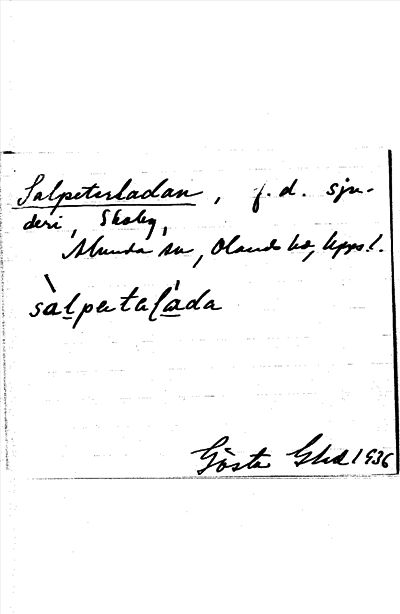 Salpeterladan, f.d. sju-
deri, Skoby,
Alunda sn, Olands hd, Uppsl.
sàlpetaláda
Gösta 1936